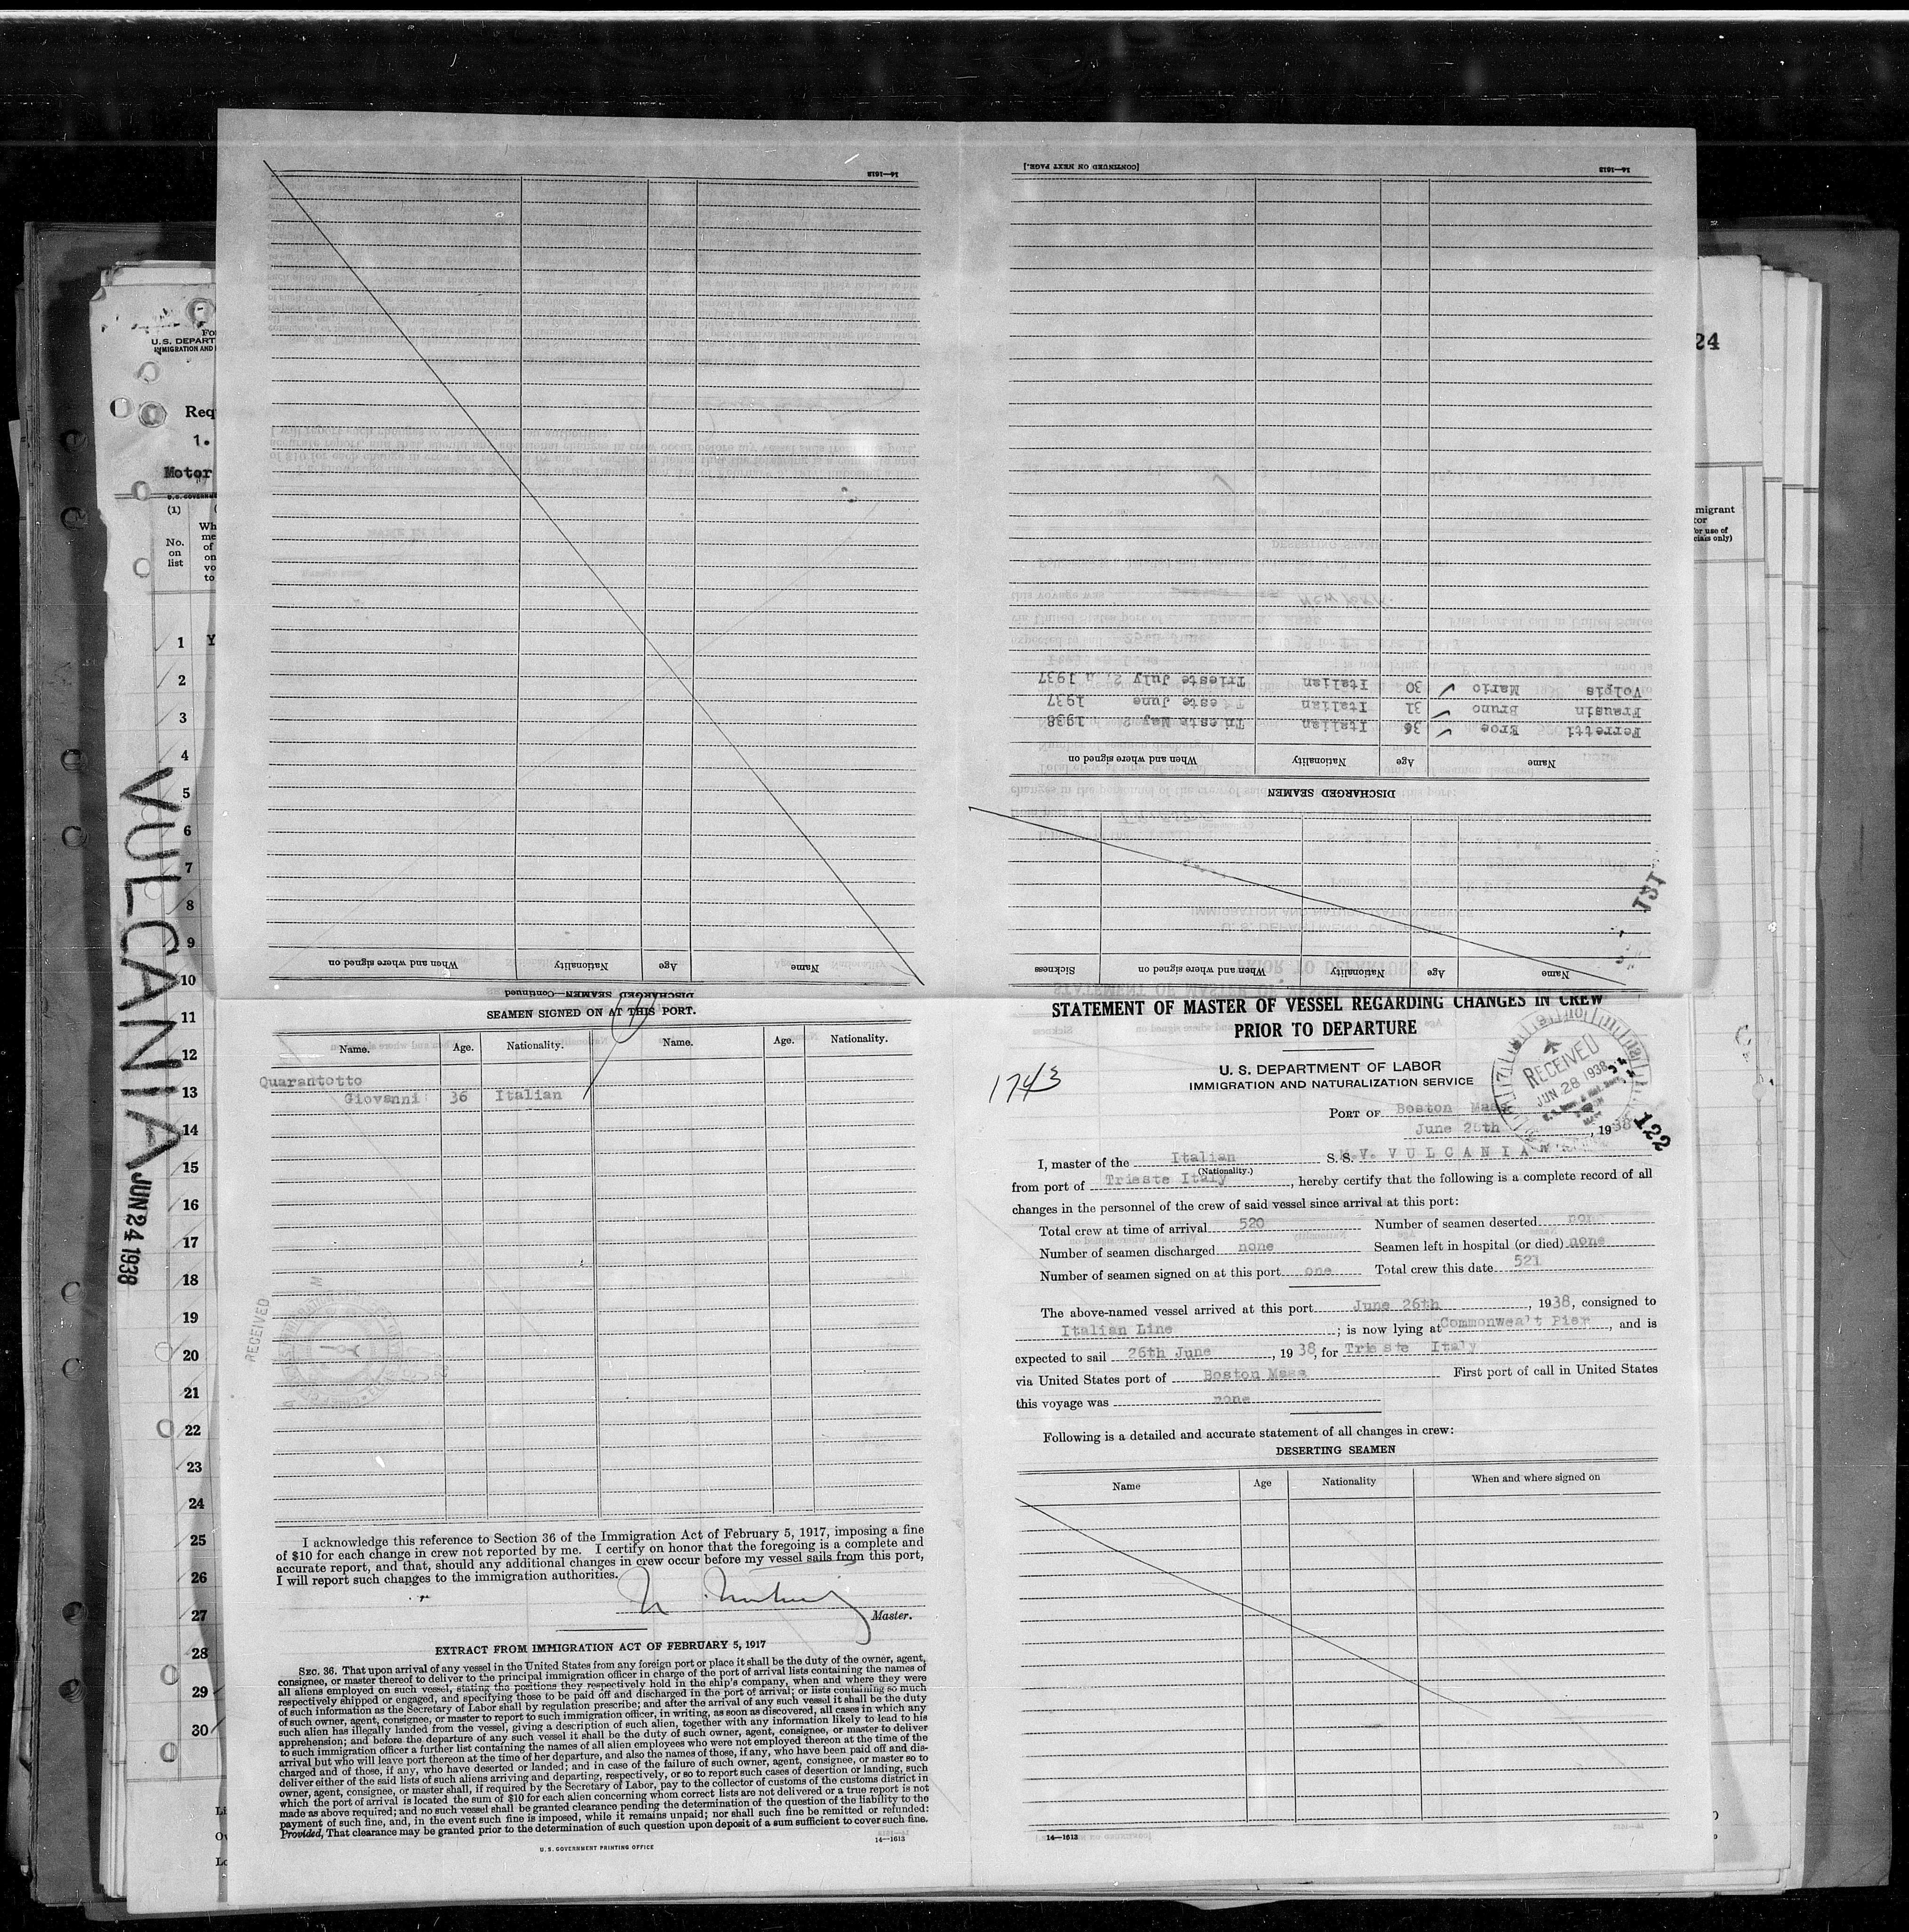 14—1613
[CONTINUED ON NEXT PAGE.]
14—1613
Volpis Mario 30 Italian Trieste July 2, 1937
Frausin Bruno 31 Italian Trieste June 1937
Ferretti Eroe 36 Italian Trieste May 2 1938
Name Age Nationality When and where signed on
DISCHARGED SEAMEN
Name Age Nationality When and where signed on Sickness
Name Age Nationality When and where signed on
DISCHARGED SEAMEN—Continued
U. S. DEPART
IMMIGRATION AND
Req
1.
Motor
(1)
No.
on
list
Wh
me
of
on
vo
to
1 Y
2
3
4
5
6
7
8
9
10
11
12
13
14
15
16
17
18
19
20
21
22
23
24
25
26
27
28
29
30
VULCANIA JUN 24 1938
24
migrant
tor
or use of
cials only)
SEAMEN SIGNED ON AT THIS PORT.
Name. Age. Nationality. Name. Age. Nationality.
Quarantotto
Giovanni 36 Italian
RECEIVED
I acknowledge this reference to Section 36 of the Immigration Act of February 5, 1917, imposing a fine
of $10 for each change in crew not reported by me. I certify on honor that the foregoing is a complete and
accurate report, and that, should any additional changes in crew occur before my vessel sails from this port,
I will report such changes to the immigration authorities.
Master.
EXTRACT FROM IMMIGRATION ACT OF FEBRUARY 5, 1917
SEC. 36. That upon arrival of any vessel in the United States from any foreign port or place it shall be the duty of the owner, agent,
consignee, or master thereof to deliver to the principal immigration officer in charge of the port of arrival lists containing the names of
all aliens employed on such vessel, stating the positions they respectively hold in the ship's company, when and where they were
respectively shipped or engaged, and specifying those to be paid off and discharged in the port of arrival; or lists containing so much
of such information as the Secretary of Labor shall by regulation prescribe; and after the arrival of any such vessel it shall be the duty
of such owner, agent, consignee, or master to report to such immigration officer, in writing, as soon as discovered, all cases in which any
such alien has illegally landed from the vessel, giving a description of such alien, together with any information likely to lead to his
apprehension; and before the departure of any such vessel it shall be the duty of such owner, agent, consignee, or master to deliver
to such immigration officer a further list containing the names of all alien employees who were not employed thereon at the time of the
arrival but who will leave port thereon at the time of her departure, and also the names of those, if any, who have been paid off and dis-
charged and of those, if any, who have deserted or landed; and in case of the failure of such owner, agent, consignee, or master so to
deliver either of the said lists of such aliens arriving and departing, respectively, or so to report such cases of desertion or landing, such
owner, agent, consignee, or master shall, if required by the Secretary of Labor, pay to the collector of customs of the customs district in
which the port of arrival is located the sum of $10 for each alien concerning whom correct lists are not delivered or a true report is not
made as above required; and no such vessel shall be granted clearance pending the determination of the question of the liability to the
payment of such fine, and, in the event such fine is imposed, while it remains unpaid; nor shall such fine be remitted or refunded:
Provided, That clearance may be granted prior to the determination of such question upon deposit of a sum sufficient to cover such fine.
14—1613
U. S. GOVERNMENT PRINTING OFFICE
121
STATEMENT OF MASTER OF VESSEL REGARDING CHANGES IN CREW
PRIOR TO DEPARTURE
U. S. DEPARTMENT OF LABOR
IMMIGRATION AND NATURALIZATION SERVICE
1743
RECEIVED
JUN 28 1938
122
PORT OF Boston Mass
June 26th, 1938
I, master of the Italian S. S. M.V. VULCANIA
(Nationality.)
from port of Trieste Italy, hereby certify that the following is a complete record of all
changes in the personnel of the crew of said vessel since arrival at this port:
Total crew at time of arrival 520 Number of seamen deserted none
Number of seamen discharged none Seamen left in hospital (or died) none
Number of seamen signed on at this port one Total crew this date 521
The above-named vessel arrived at this port June 26th, 1938, consigned to
Italian Line; is now lying at Commonwea't Pier, and is
expected to sail 26th June, 1938, for Trieste Italy
via United States port of Boston Mass First port of call in United States
this voyage was none
Following is a detailed and accurate statement of all changes in crew:
DESERTING SEAMEN
Name Age Nationality When and where signed on
14—1613